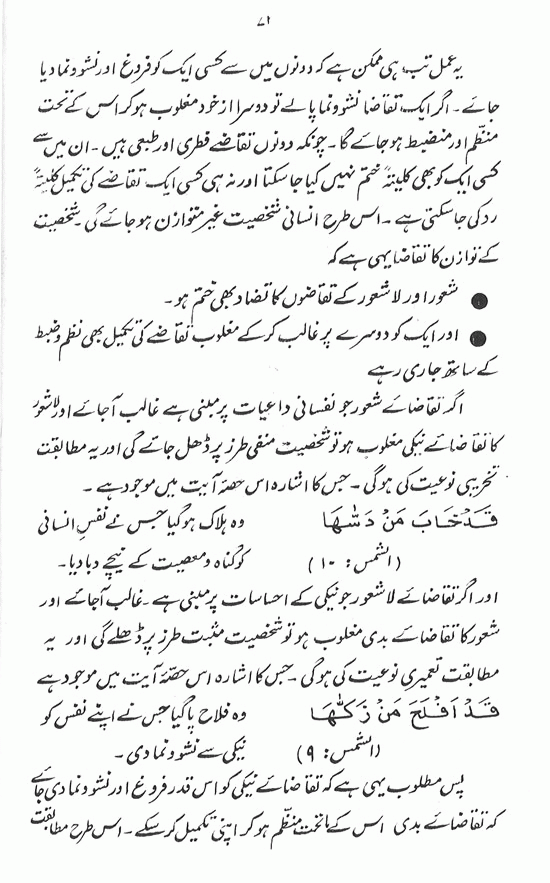 ۷۱
یہ عمل تب ہی ممکن ہے کہ دونوں میں سے کسی ایک کو فروغ اور نشوونما دیا
جائے۔ اگر ایک تقاضا نشوونما پالے تو دوسرا از خود مغلوب ہو کر اس کے تحت
منظّم اور منضبط ہو جائے گا۔ چونکہ دونوں تقاضے فطری اور طبعی ہیں۔ ان میں سے
کسی ایک کو بھی کلیتہً ختم نہیں کیا جا سکتا اور نہ ہی کسی ایک تقاضے کی تکمیل کلیتہً
رد کی جا سکتی ہے۔ اس طرح انسانی شخصیت غیر متوازن ہو جائے گی۔ شخصیت
کے توازن کا تقاضا یہی ہے کہ
● شعور اور لا شعور کے تقاضوں کا تضاد بھی ختم ہو۔
● اور ایک کو دوسرے پر غالب کر کے مغلوب تقاضے کی تکمیل بھی نظم و ضبط
کے ساتھ جاری رہے
اگر تقاضائے شعور جو نفسانی داعیات پر مبنی ہے غالب آجائے اور لا شعور
کا تقاضائے نیکی مغلوب ہو تو شخصیت منفی طرز پر ڈھل جائے گی اور یہ مطابقت
تخریبی نوعیت کی ہوگی۔ جس کا اشارہ اس حصّہ آیت میں موجود ہے۔
قَدْ خَابَ مَنْ دَسّٰهَا وہ ہلاک ہو گیا جس نے نفسِ انسانی
(الشمس: ۱۰) کو گناہ و معصیت کے نیچے دبا دیا۔
اور اگر تقاضائے لا شعور جو نیکی کے احساسات پر مبنی ہے۔ غالب آجائے اور
شعور کا تقاضائے بدی مغلوب ہو تو شخصیت مثبت طرز پر ڈھلے گی اور یہ
مطابقت تعمیری نوعیت کی ہوگی۔ جس کا اشارہ اس حصّہ آیت میں موجود ہے
قَدْ اَفْلَحَ مَنْ زَكّٰهَا وہ فلاح پا گیا جس نے اپنے نفس کو
(الشمس: ۹) نیکی سے نشوونما دی۔
پس مطلوب یہی ہے کہ تقاضائے نیکی کو اس قدر فروغ اور نشوونما دی جائے
کہ تقاضائے بدی اس کے ماتحت منظّم ہو کر اپنی تکمیل کر سکے۔ اس طرح مطابقت